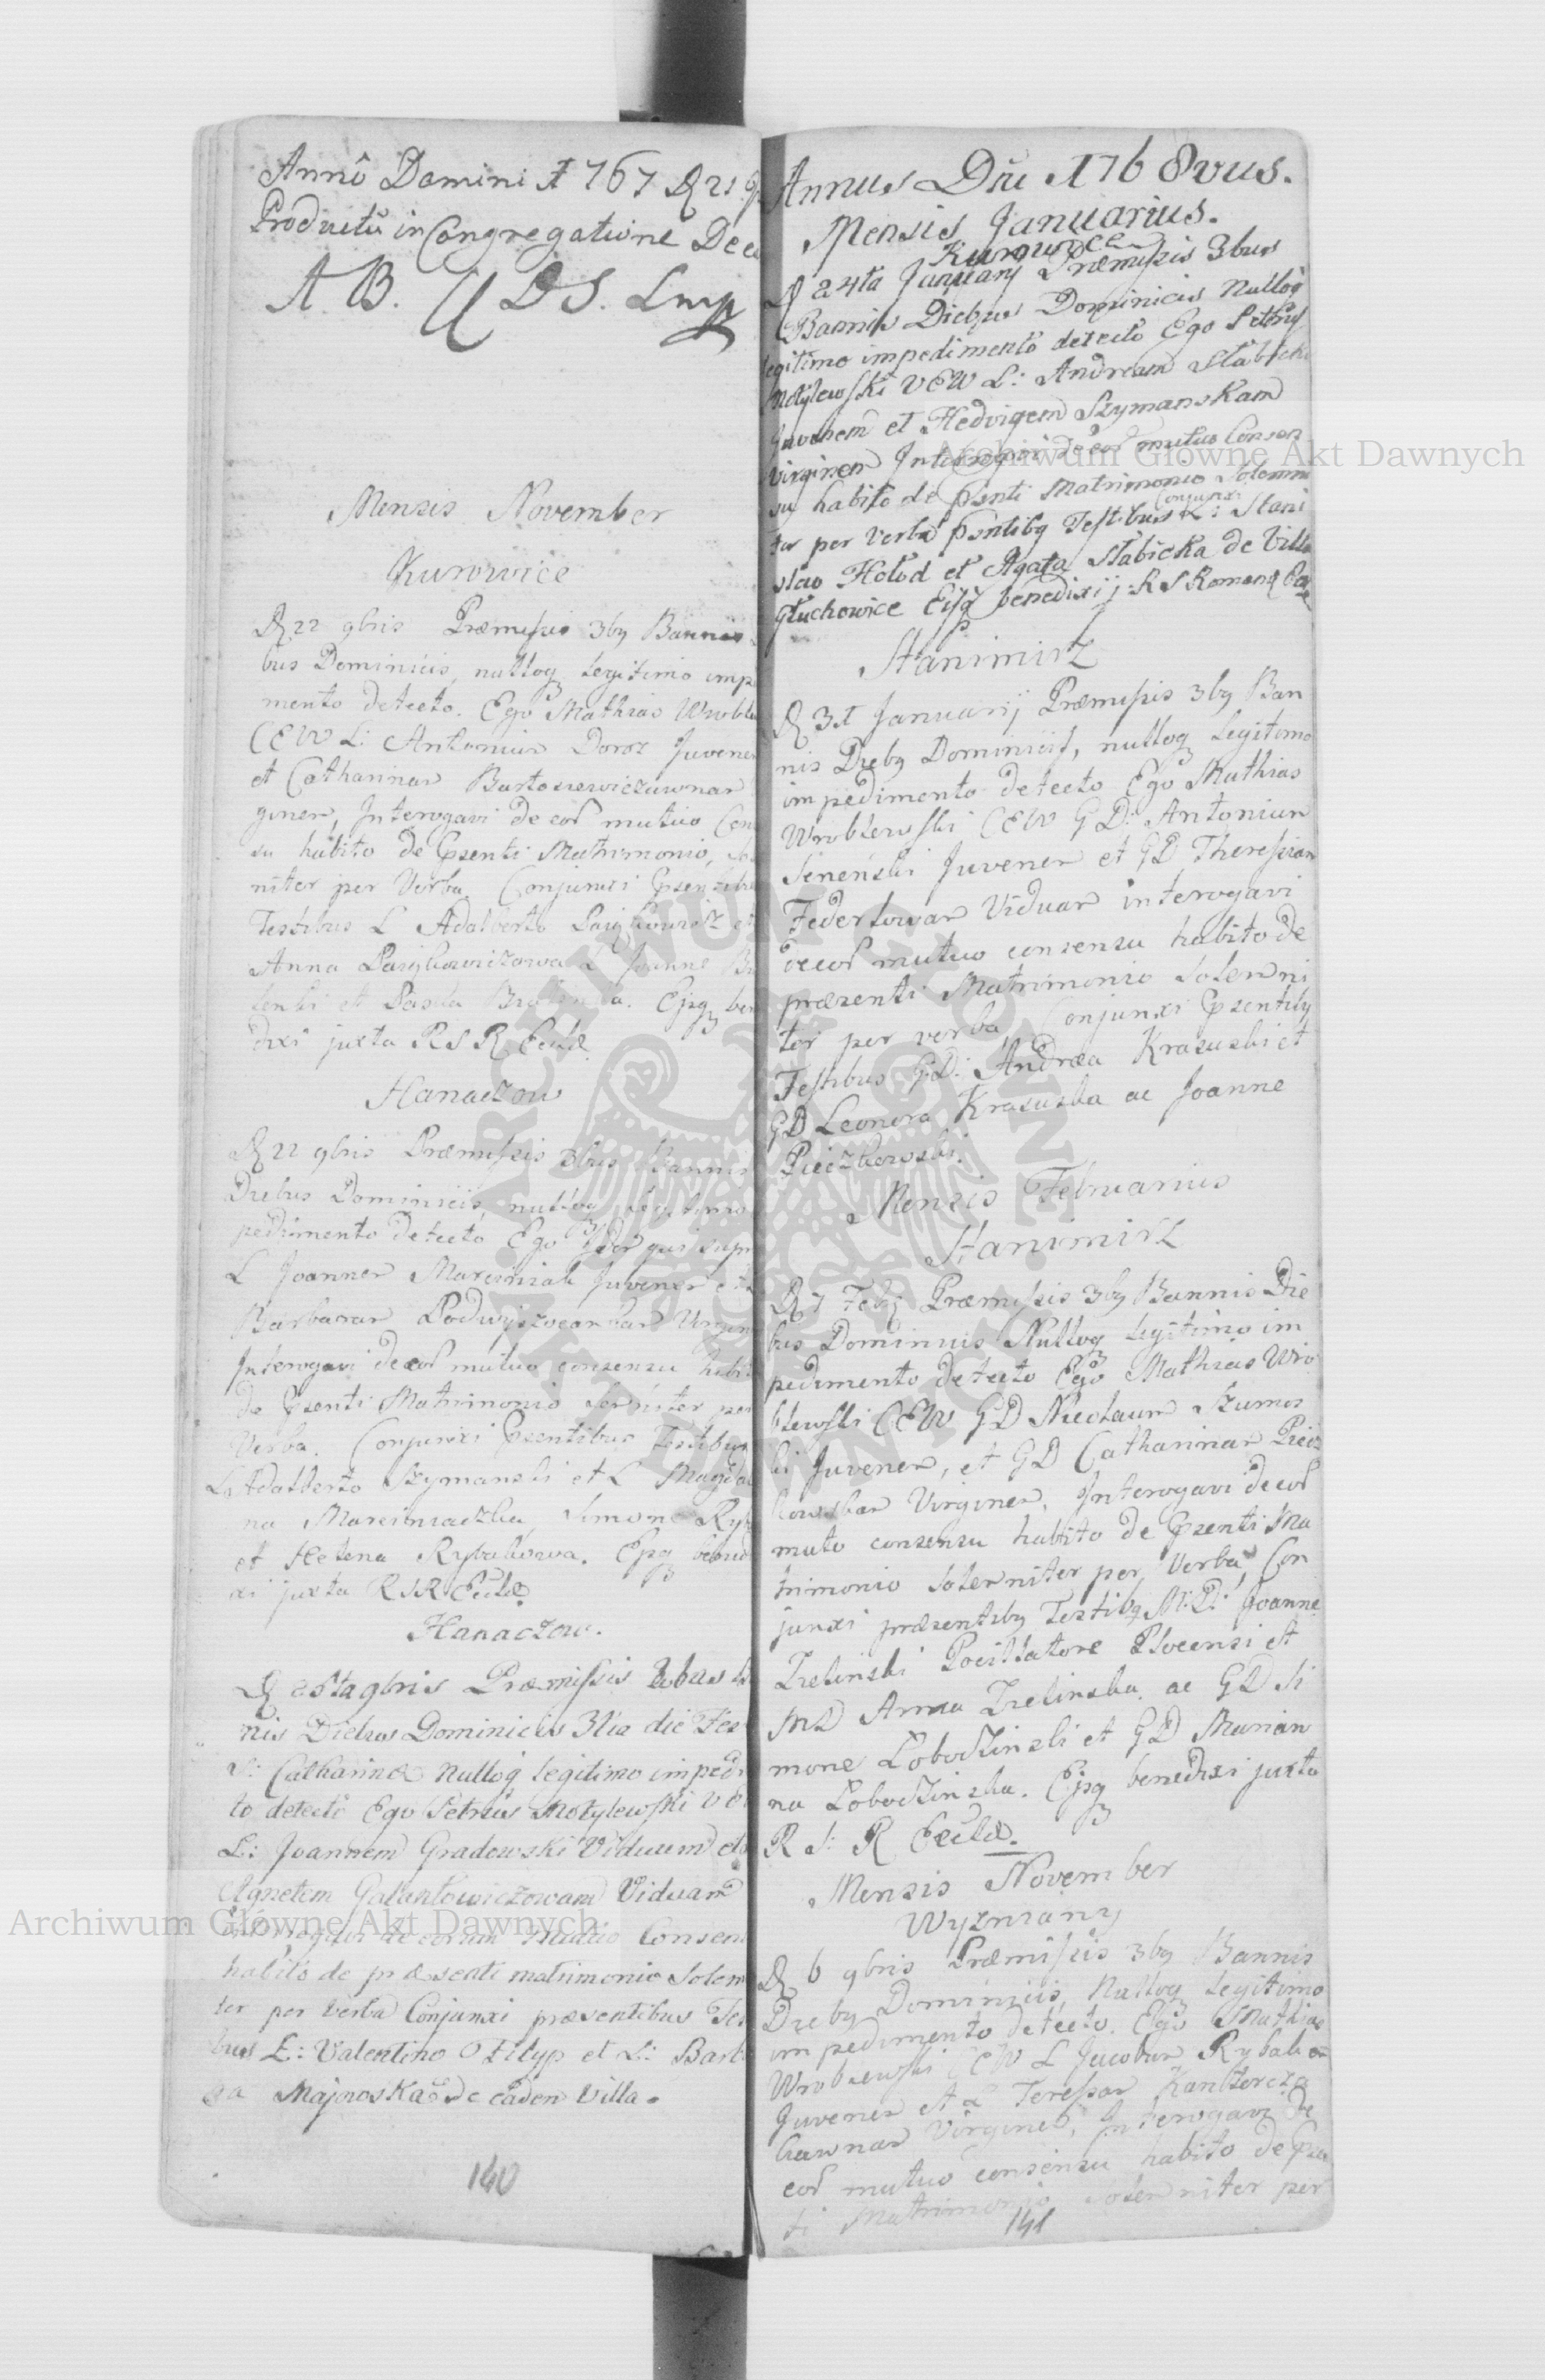 Annô Domini 1767 D 21
Productũ in Congregatione
A B. D S.
Mensis November
Kurowice
D 22 9bris Præmissis 3bq Bannis
bus Dominicis, nulloq legitimo imp
mento detecto. Ego Mathias Wrobl
CEW L: Antonium Doroz Juvenem
et Catharinam Bartosiewiczuwnam
ginem, Interogavi de eoř mutuo Con
su habito de Psenti Matrimonio,
niter per Verba Conjunxi
Testibus L Adalberto et
Anna L Joanne
et Ejsq ben
dixi juxta R S R Eccłæ
Hanaczow
D 22 9bris Præmissis 3bus Bannis
Diebus Dominicis, nulloq legitimo
pedimento detecto, Ego Idem qui supr
L Joannem Marciniak Juvenem et
Barbaram Virgin
Interogavi de eoř mutuo consensu habit
de Psenti Matrimonio per
Verba. Conjunxi Psentibus Testibus
L Adalberto Szymanski et L Magda
na Marciniaczka, Simone Ryb
et Helena Rybakowa. Ejsq bened
xi juxta R S R Eccłæ
Hanaczow.
D 9bris Præmissis
nis Diebus Dominicis 3tia die Fes
S: Catharinæ Nulloq legitimo impedi
to detectô Ego Petrus Motylewski V E
L: Joannem Gradowski Viduum et
Agnetem Galantowiczowam Viduam
Interrogavi de eorum mutuo Consen
habitô de præsenti matrimonio Solem
ter per Verba Conjunxi præsentibus Tes
bus L: Valentino Filyp et L: Barb
ra Majowska de eadem Villa.
140
Annus Dñi 1768vus.
Mensis Januarius.
Kurowice
D 24ta January Præmissis 3bus
Bannis Diebus Dominicis Nulloq
legitimo impedimentô detectô Ego Petrus
Motylewski VEW L: Andream Słabicki
Juvenem et Hedvigem Szymanskam
Virginem Interrogavi de eoř mutuo Consen
su habitô de Psnti Matrimonio Solemni
ter per Verba Psntibq Testibus Conjunxi L: Stani
slao Hołod et Agata Słabicka de Villa
Głuchowice Eisq benedixi j: R S Romanæ Ecc
Stanimirz
D 31 Januarij Præmissis 3bq Ban
nis Diebq Dominicis, nulloq Legitimo
impedimento detecto Ego Mathias
Wroblewski CEW G D: Antonium
Sinenski Juvenem et GD Theressiam
Federlowam Viduam interogavi
de eoř mutuo consensu habito de
præsenti Matrimonio Solenni
ter per verba, Conjunxi Psentibq
Testibus GD: Andrea Krasuski et
GD Leonora Krasuska ac Joanne
Pieczkowski.
Mensis Februarius
Stanimirz
D 7 Febr Præmissis 3bq Bannis Die
bus Dominicis Nulloq legitimo im
pedimento detecto Ego Mathias Wro
blewski CEW GD Nicolaum Szumos
ki Juvenem, et GD Catharinam Piecz
kowskam Virginem, Interogavi de eoř
mutuo consensu habito de Psenti Ma
trimonio Solenniter per Verba, Con
junxi præsentibq Testibq M:D: Joanne
Zielinski Pocillatore Plocensi et
MD Anna Zielinska ac GD Si
mone Łobodzinski et GD Marian
na Łobodzinska. Ejsq benedixi juxta
R S: R Eccłæ.
Mensis November
Wyzniany
D 6 9bris Præmissis 3bq Bannis
Diebq Dominicis, Nulloq Legitimo
impedimento detecto. Ego Mathias
Wroblewski CEW L Jacobum
Juvenem et L Teressam
Virginem, Interogavi de
eoř mutuo consensu habito de Psen
ti Matrimonio solenniter per
141
Archiwum Główne Akt Dawnych
Archiwum Główne Akt Dawnych
ARCHIWUM GŁÓWNE AKT DAWNYCH